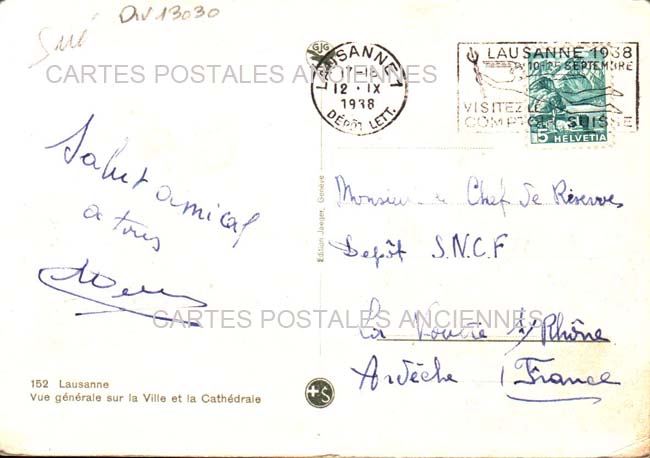 Div 13030
Suí
GJG
LAUSANNE 1
12·IX
1938
DÉPÔT LETT.
LAUSANNE 1938
10-25 SEPTEMBRE
VISITEZ LE
COMPTOIR SUISSE
5 HELVETIA
CARTES POSTALES ANCIENNES
Salut amical
a tous
Edition Jaeger, Genève
Monsieur le Chef de Réserves
Depôt S.N.C.F
La Voulte s/Rhône
Ardèche France
CARTES POSTALES ANCIENNES
152 Lausanne
Vue générale sur la Ville et la Cathédrale
+S